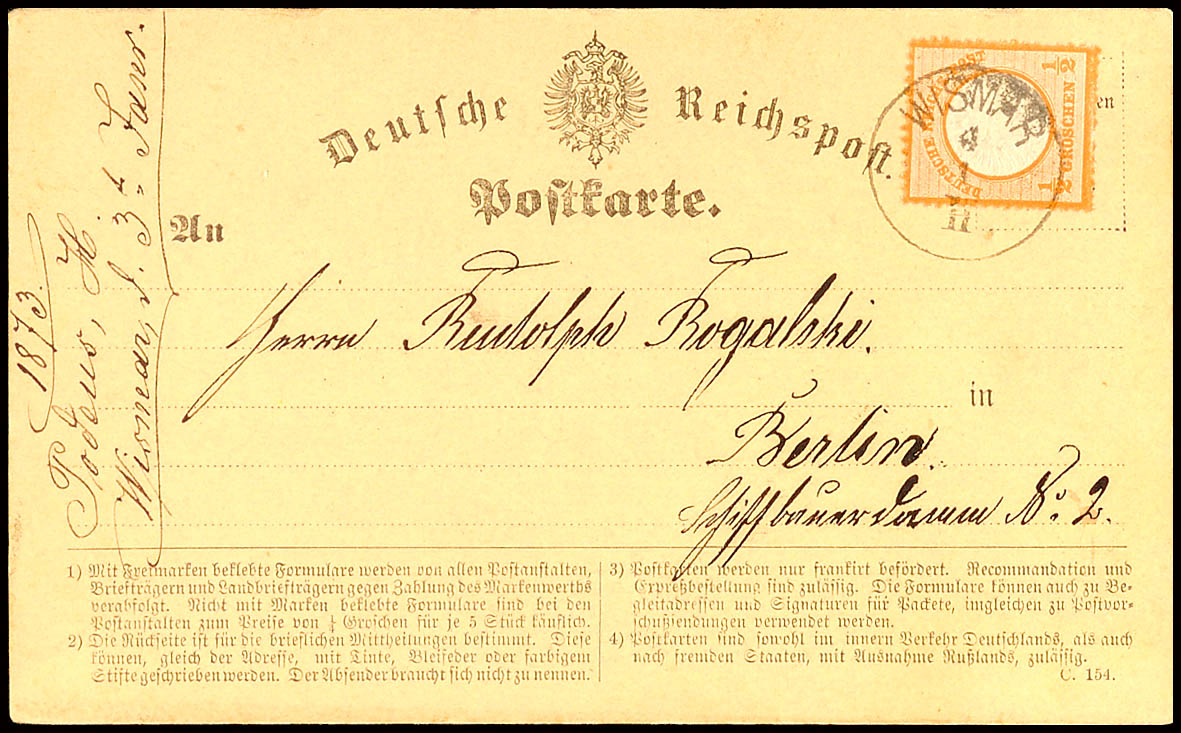 Deutsche Reichspost.
Postkarte.
WISMAR
4
1
½ GROSCHEN ½
DEUTSCHE
POST
en
An
Herrn Rudolph Rogalski.
in
Berlin.
Schiffbauerdamm No. 2.
1873.
Podeus, H.
Wismar, d. 3t Janr.
1) Mit Freimarken beklebte Formulare werden von allen Postanstalten,
Briefträgern und Landbriefträgern gegen Zahlung des Markenwerths
verabfolgt. Nicht mit Marken beklebte Formulare sind bei den
Postanstalten zum Preise von ¼ Groschen für je 5 Stück käuflich.
2) Die Rückseite ist für die brieflichen Mittheilungen bestimmt. Diese
können, gleich der Adresse, mit Tinte, Bleifeder oder farbigem
Stifte geschrieben werden. Der Absender braucht sich nicht zu nennen.
3) Postkarten werden nur frankirt befördert. Recommandation und
Expreßbestellung sind zulässig. Die Formulare können auch zu Be-
gleitadressen und Signaturen für Packete, imgleichen zu Postvor-
schußsendungen verwendet werden.
4) Postkarten sind sowohl im innern Verkehr Deutschlands, als auch
nach fremden Staaten, mit Ausnahme Rußlands, zulässig.
C. 154.